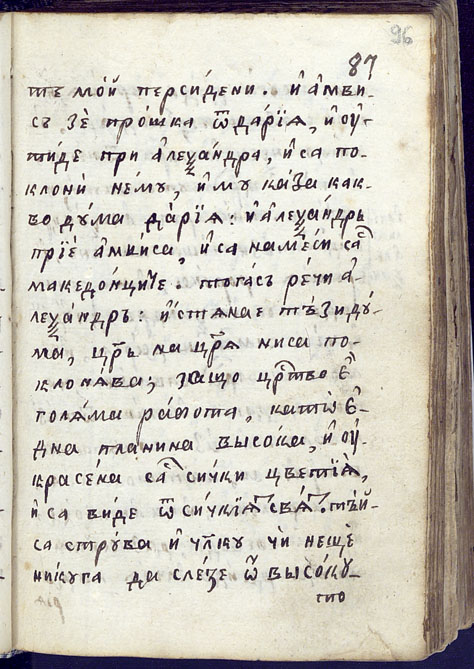 96
87
тъ мо́й персиде́ни. и҆ а҆мви-
съ зѐ про́шка ѿ да́рїѧ, и҆ ѹ҆-
ти́де при а҆леѯа́ндра, и҆ са по-
клонѝ не́му, и҆ му ка́за как-
во ду́ма да́рїѧ: и҆ а҆леѯа́ндръ
прїѐ а҆мвиса и҆ са намѐси са̑с
македо́нциѝе. тога́съ ре́чи а҆-
леѯа́ндръ: и҆стѧнае тъ́зи ду́-
ма, цр҃ь на цр҃ѧ ниса по-
клонѧ́ва; защо̀ црⷭ҇тво є҆
голѧ́ма ра́бота, катѡ̀ є҆-
дна̀ планина̀ висо́ка, и҆ ѹ҆-
красе́на са̑с си́чки цветїѧ̀,
и҆ са ви́де ѿ си́чкїѧ свѧ́т. тъ́й-
са стрꙋ́ва и҆ чл҃ку чѝ не́щѐ
ни́куга да сле́зе ѿ висо́ку-
тио